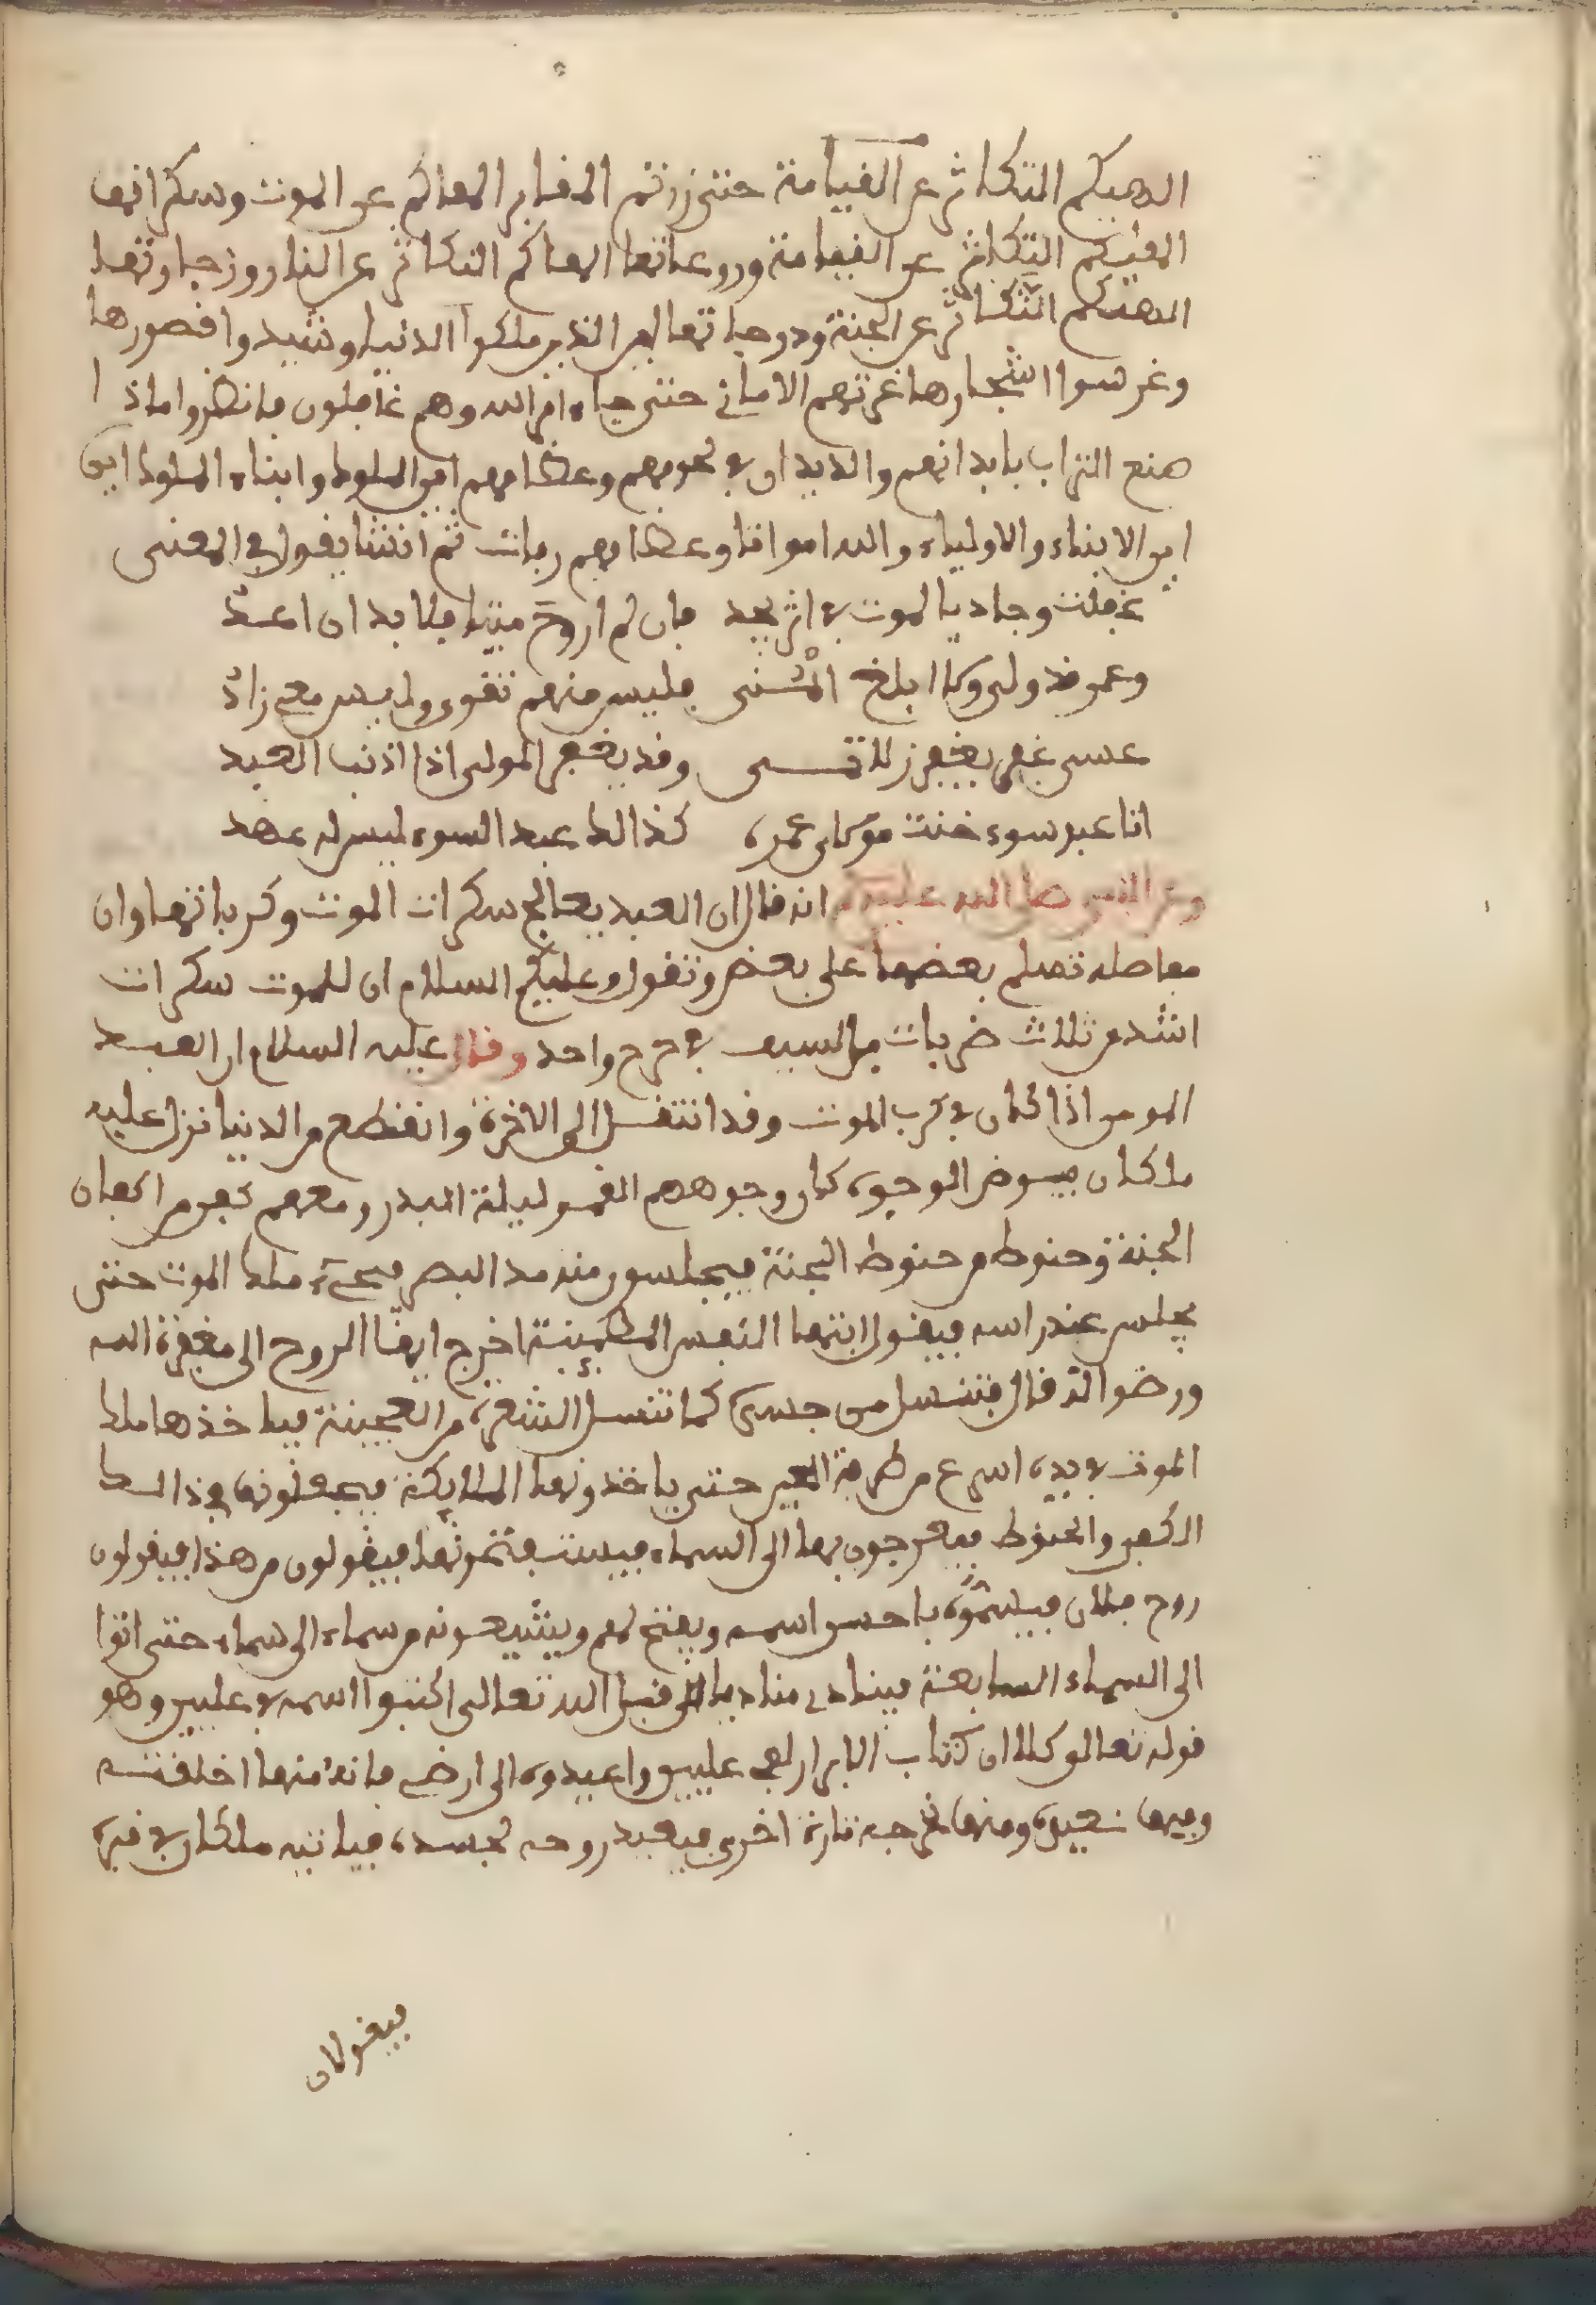 الهيكم التكاثر عن القيامة حتى زرتم المقابر الهاكم عن الموت وسكراتها
الهيكم التكاثر عن القيامة وروعاتها الهاكم التكاثر عن النار وزجراتها
الهيكم التكاثر عن الجنة ودرجاتها اين الذين ملكوا الدنيا وشيدوا قصورها
وغرسوا اشجارها غرتهم الاماني حتى جاء امر الله وهم غافلون فانظروا ماذا
صنع التراب بابدانهم والديدان في لحومهم وعظامهم اين الملوك وابناء الملوك اين
اين الابناء والاولياء والله امواتا وعظامهم رفات ثم انشا يقول في المعنى
غفلت وحادي الموت في اثري يحد فان لم اروح ميتا فلا بد ان اعد
وعمري قد ولى ولا ابلغ المنى فليس منهم تقوى وليس معي زاد
عسى غفر يغفر زلاتي وقد يغفر المولى اذا اذنب العبد
انا عبد سوء خنت مولاي عمره كذالك عبد السوء ليس له عهد
وعن النبي صلى الله عليه انه قال ان العبد يعالج سكرات الموت وكرباتها وان
مفاصله تسلم بعضها على بعض وتقول وعليكم السلام ان للموت سكرات
اشد من ثلاث ضربات من السيف في جرح واحد وقال عليه السلام ان العبد
المومن اذا كان في كرب الموت وقد انتقل الى الاخرة وانقطع من الدنيا نزل عليه
ملكان بيوض الوجوه كان وجوههم القمر ليلة البدر ومعهم كفن من اكفان
الجنة وحنوط من حنوط الجنة فيجلسون منه مد البصر فيجيء ملك الموت حتى
يجلس عند راسه فيقول ايتها النفس المطمينة اخرج ايها الروح الى مغفرة الله
ورضوانه قال فتنسل من جسده كما تنسل الشعرة من العجينة فياخذها ملك
الموت في يده اسرع من طرفة العين حتى ياخذونها الملايكة فيجعلونها في ذالك
الكفن والحنوط فيعرجون بها الى السماء فيستفتحونها فيقولون من هذا فيقولون
روح فلان فيسموه باحسن اسمه ويفتح لهم ويشيعونه من سماء الى سماء حتى اتوا
الى السماء السابعة فينادي مناديا من قبل الله تعالى اكتبوا اسمه في عليين وهو
قوله تعالى كلا ان كتاب الابرار لفي عليين واعيدوه الى ارضي فانه منها اخلقته
وفيها نعيده ومنها نخرجه تارة اخرى فيعيد روحه لجسده فياتيه ملكان في قبره
فيقولان